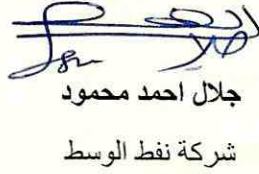 جلال احمد محمود
شركة نفط الوسط